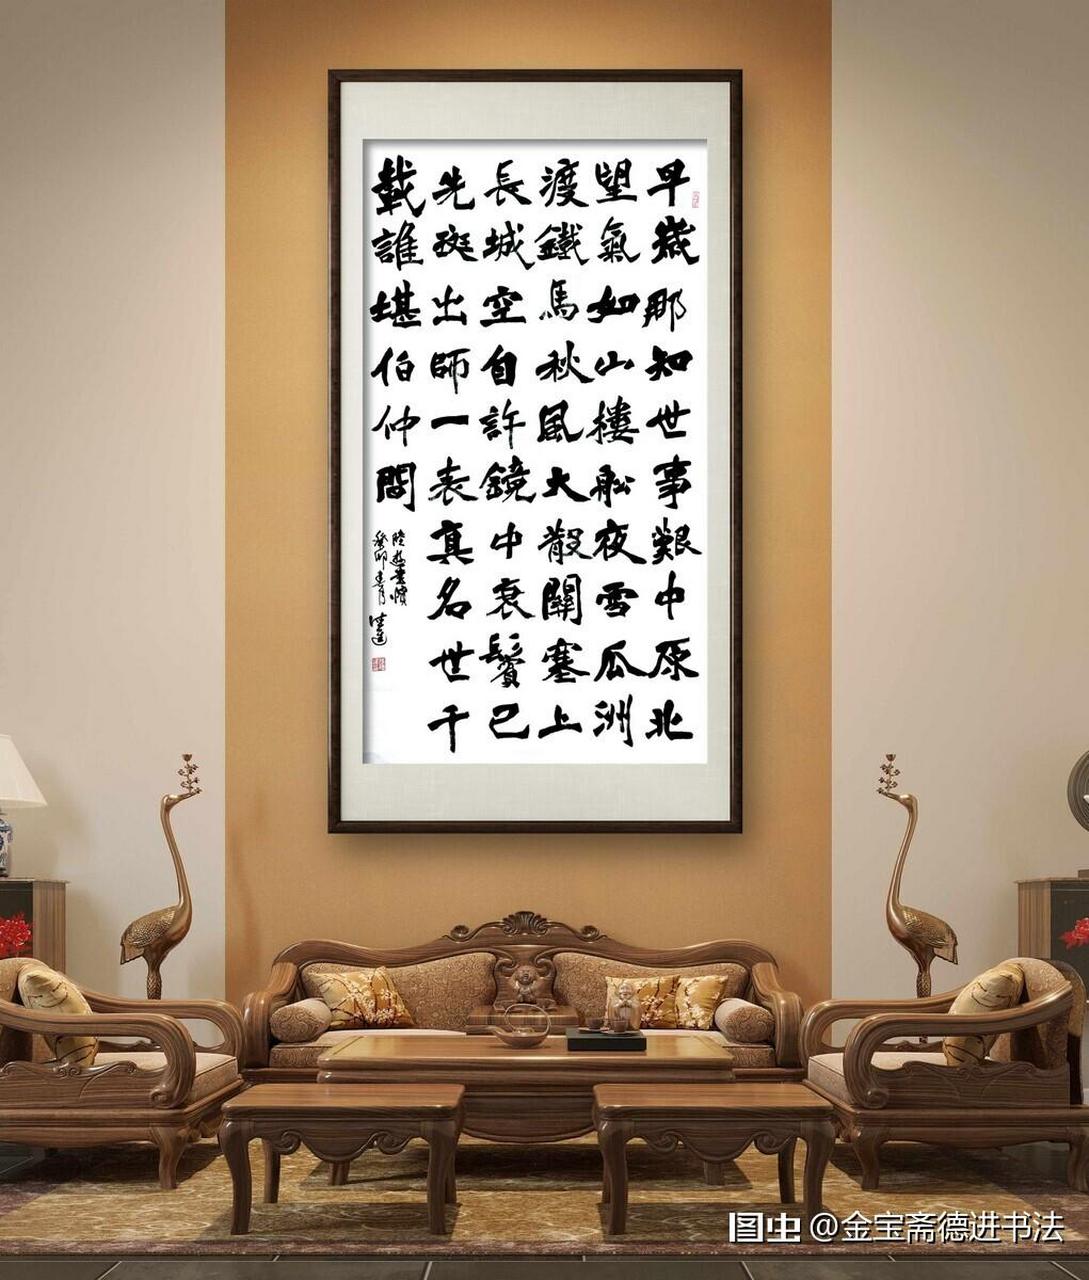 早歲那知世事艱中原北
望氣如山樓船夜雪瓜洲
渡鐵馬秋風大散關塞上
長城空自許鏡中衰鬢已
先斑出師一表真名世千
載誰堪伯仲間
陸游書憤
癸卯
德進
图虫 @金宝斋德进书法